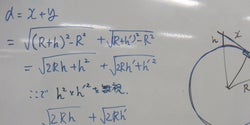 d = x + y
= √(R+h)²-R² + √(R+h')²-R²
= √2Rh+h² + √2Rh'+h'²
∵ h² と h'² を無視
√2Rh + √2Rh'
h
x
R